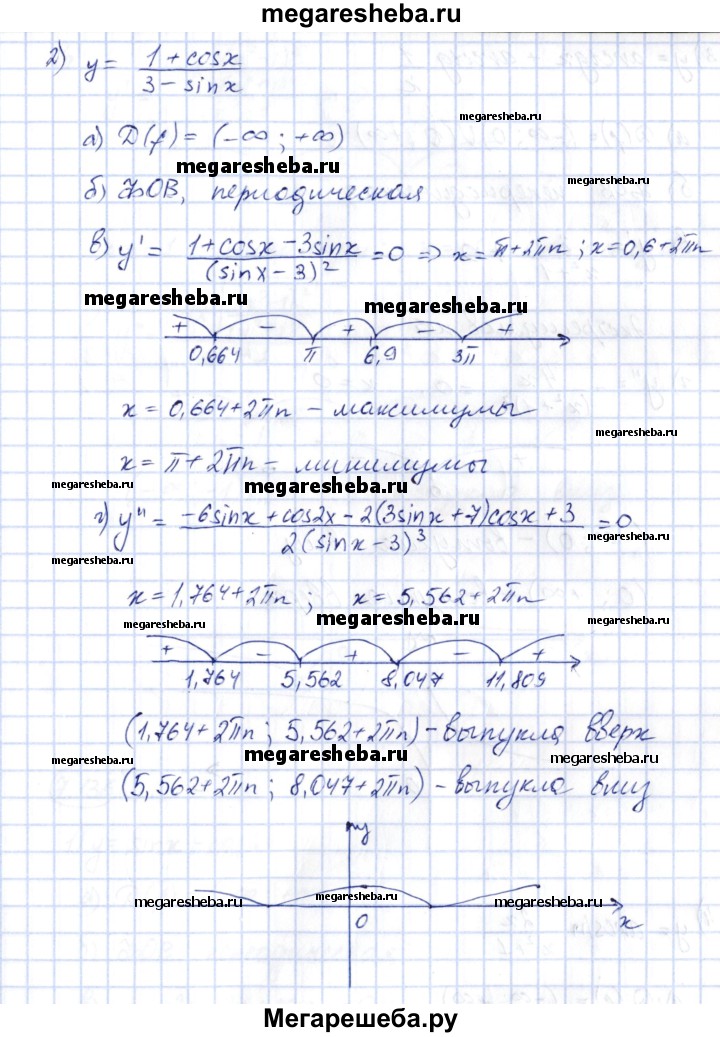 megaresheba.ru
2) y = (1 + cosx)/(3 − sinx)
megaresheba.ru
а) D(f) = (−∞; +∞)
megaresheba.ru
megaresheba.ru
б) ФОВ, периодическая
в) y' = (1 + cosx − 3sinx)/(sinx − 3)² = 0 ⇒ x = π + 2πn; x = 0,6 + 2πn
megaresheba.ru
megaresheba.ru
+ − + − +
0,664 π 6,9 3π
x = 0,664 + 2πn – максимумы
megaresheba.ru
x = π + 2πn – минимумы
megaresheba.ru
megaresheba.ru
megaresheba.ru
г) y'' = (−6sinx + cos2x − 2(3sinx + 7)cosx + 3)/(2(sinx − 3)³) = 0
megaresheba.ru
megaresheba.ru
x = 1,764 + 2πn; x = 5,562 + 2πn
megaresheba.ru
megaresheba.ru
+ − + − +
1,764 5,562 8,047 11,809
(1,764 + 2πn; 5,562 + 2πn) – выпукла вверх
megaresheba.ru
megaresheba.ru
(5,562 + 2πn; 8,047 + 2πn) – выпукла вниз
y
megaresheba.ru
megaresheba.ru
megaresheba.ru
0 x
Мегарешеба.ру